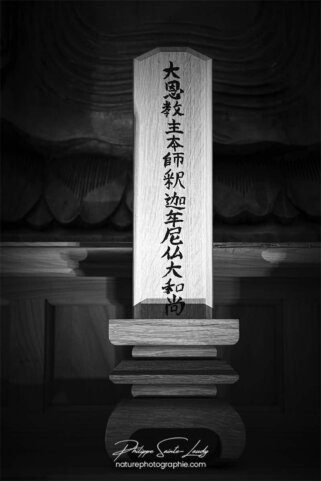 大恩教主本師釈迦牟尼仏大和尚
Philippe Sainte-Laudy
naturephotographie.com